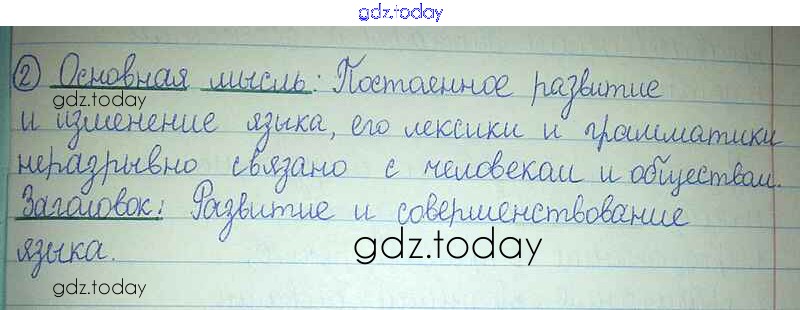 gdz.today
② Основная мысль: Постоенное развитие
gdz.today
и изменение языка, его лексики и грамматики
gdz.today
неразрывно связано с человеком и обществом.
Заголовок: Развитие и совершенствование
gdz.today
языка.
gdz.today